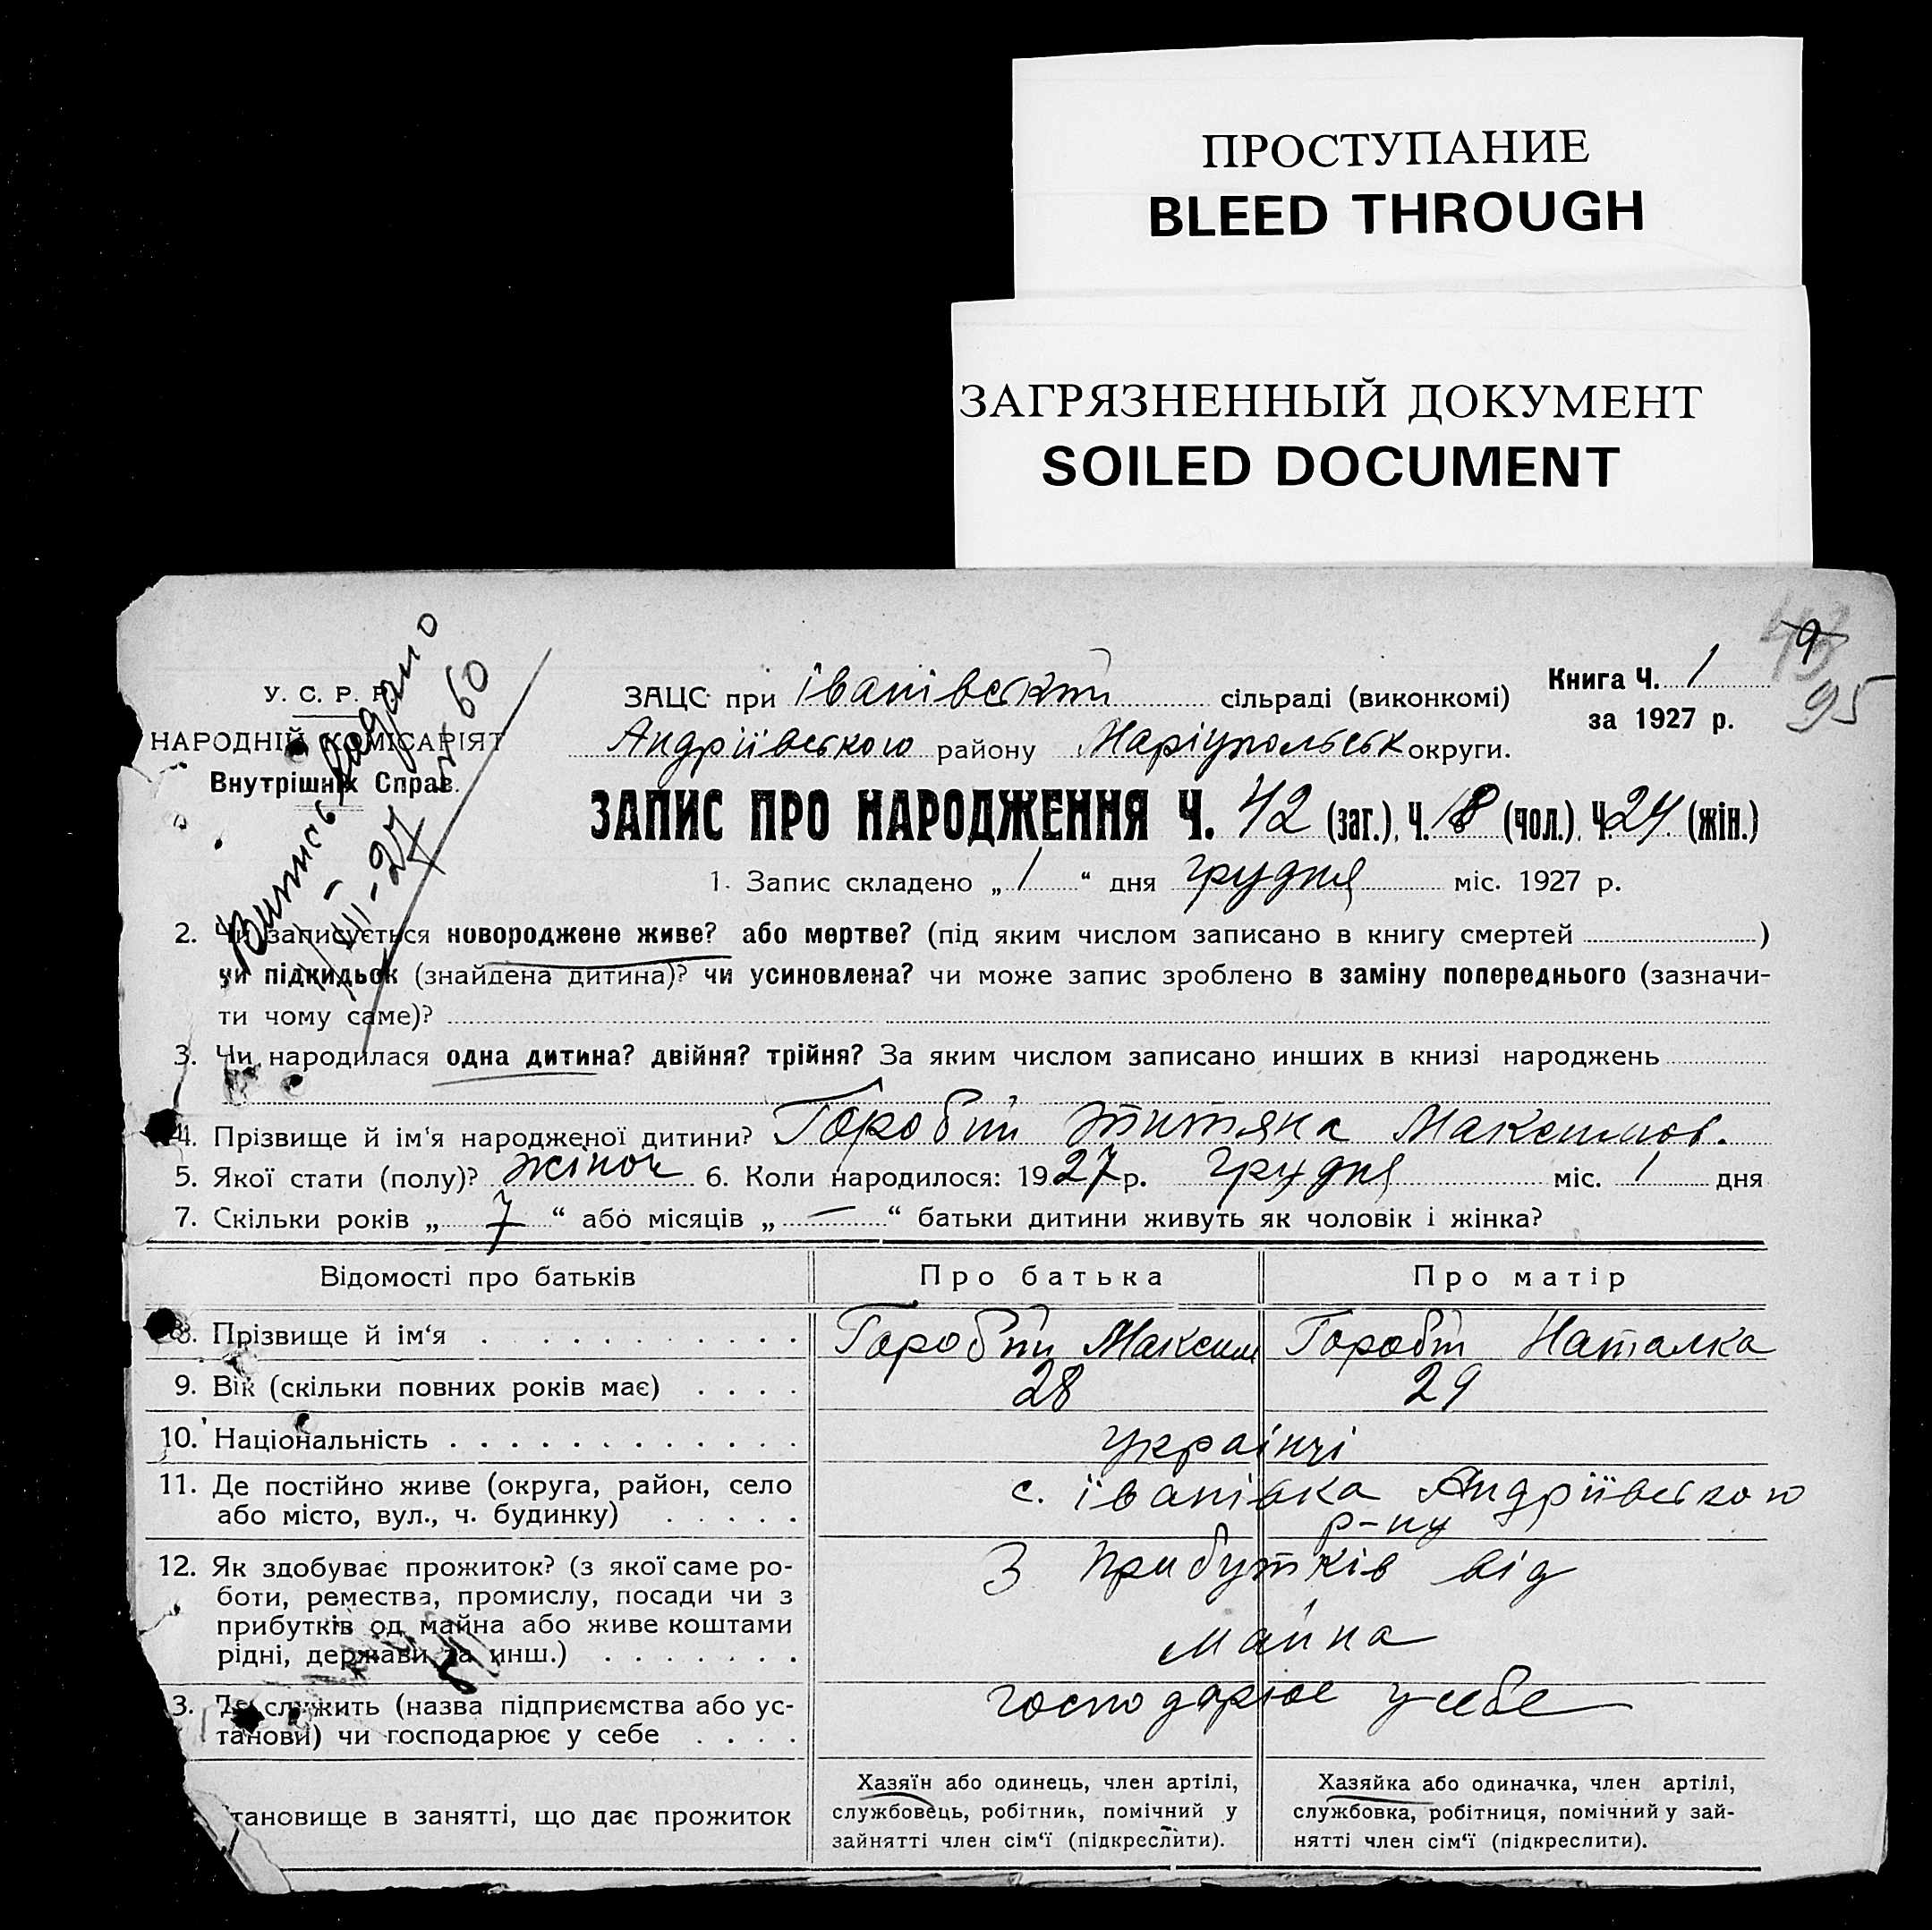 ПРОСТУПАНИЕ
BLEED THROUGH
ЗАГРЯЗНЕННЫЙ ДОКУМЕНТ
SOILED DOCUMENT
95
Випись видано
1/XII-27 № 60
У. С. Р. Р.
НАРОДНІЙ КОМІСАРІЯТ
Внутрішніх Справ.
ЗАЦС при Іванівській сільраді (виконкомі)
Книга Ч. 1
за 1927 р.
Андріївського району Маріупольськ округи.
ЗАПИС ПРО НАРОДЖЕННЯ Ч. 42 (заг.), Ч. 18 (чол.), Ч. 24 (жін.)
1. Запис складено „ 1 “ дня грудня міс. 1927 р.
2. Чи записується новороджене живе? або мертве? (під яким числом записано в книгу смертей )
чи підкидьок (знайдена дитина)? чи усиновлена? чи може запис зроблено в заміну попереднього (зазначи-
ти чому саме)?
3. Чи народилася одна дитина? двійня? трійня? За яким числом записано инших в книзі народжень
4. Прізвище й ім‘я народженої дитини? Горобій Титяна Максимов.
5. Якої стати (полу)? жіноч 6. Коли народилося: 1927 р. грудня міс. 1 дня
7. Скільки років „ 7 “ або місяців „ — “ батьки дитини живуть як чоловік і жінка?
Відомості про батьків Про батька Про матір
8. Прізвище й ім‘я Горобій Максим Горобій Наталка
9. Вік (скільки повних років має) 28 29
10. Національність українці
11. Де постійно живе (округа, район, село
або місто, вул., ч. будинку)
с. Іванівка Андріївського
р-ну
12. Як здобуває прожиток? (з якої саме ро-
боти, ремества, промислу, посади чи з
прибутків од майна або живе коштами
рідні, держави та инш.)
З прибутків від
майна
13. Де служить (назва підприємства або ус-
танови) чи господарює у себе
господарює у себе
тановище в занятті, що дає прожиток
Хазяїн або одинець, член артілі,
службовець, робітник, помічний у
зайнятті член сім‘ї (підкреслити).
Хазяйка або одиначка, член артілі,
службовка, робітниця, помічний у зай-
нятті член сім‘ї (підкреслити).